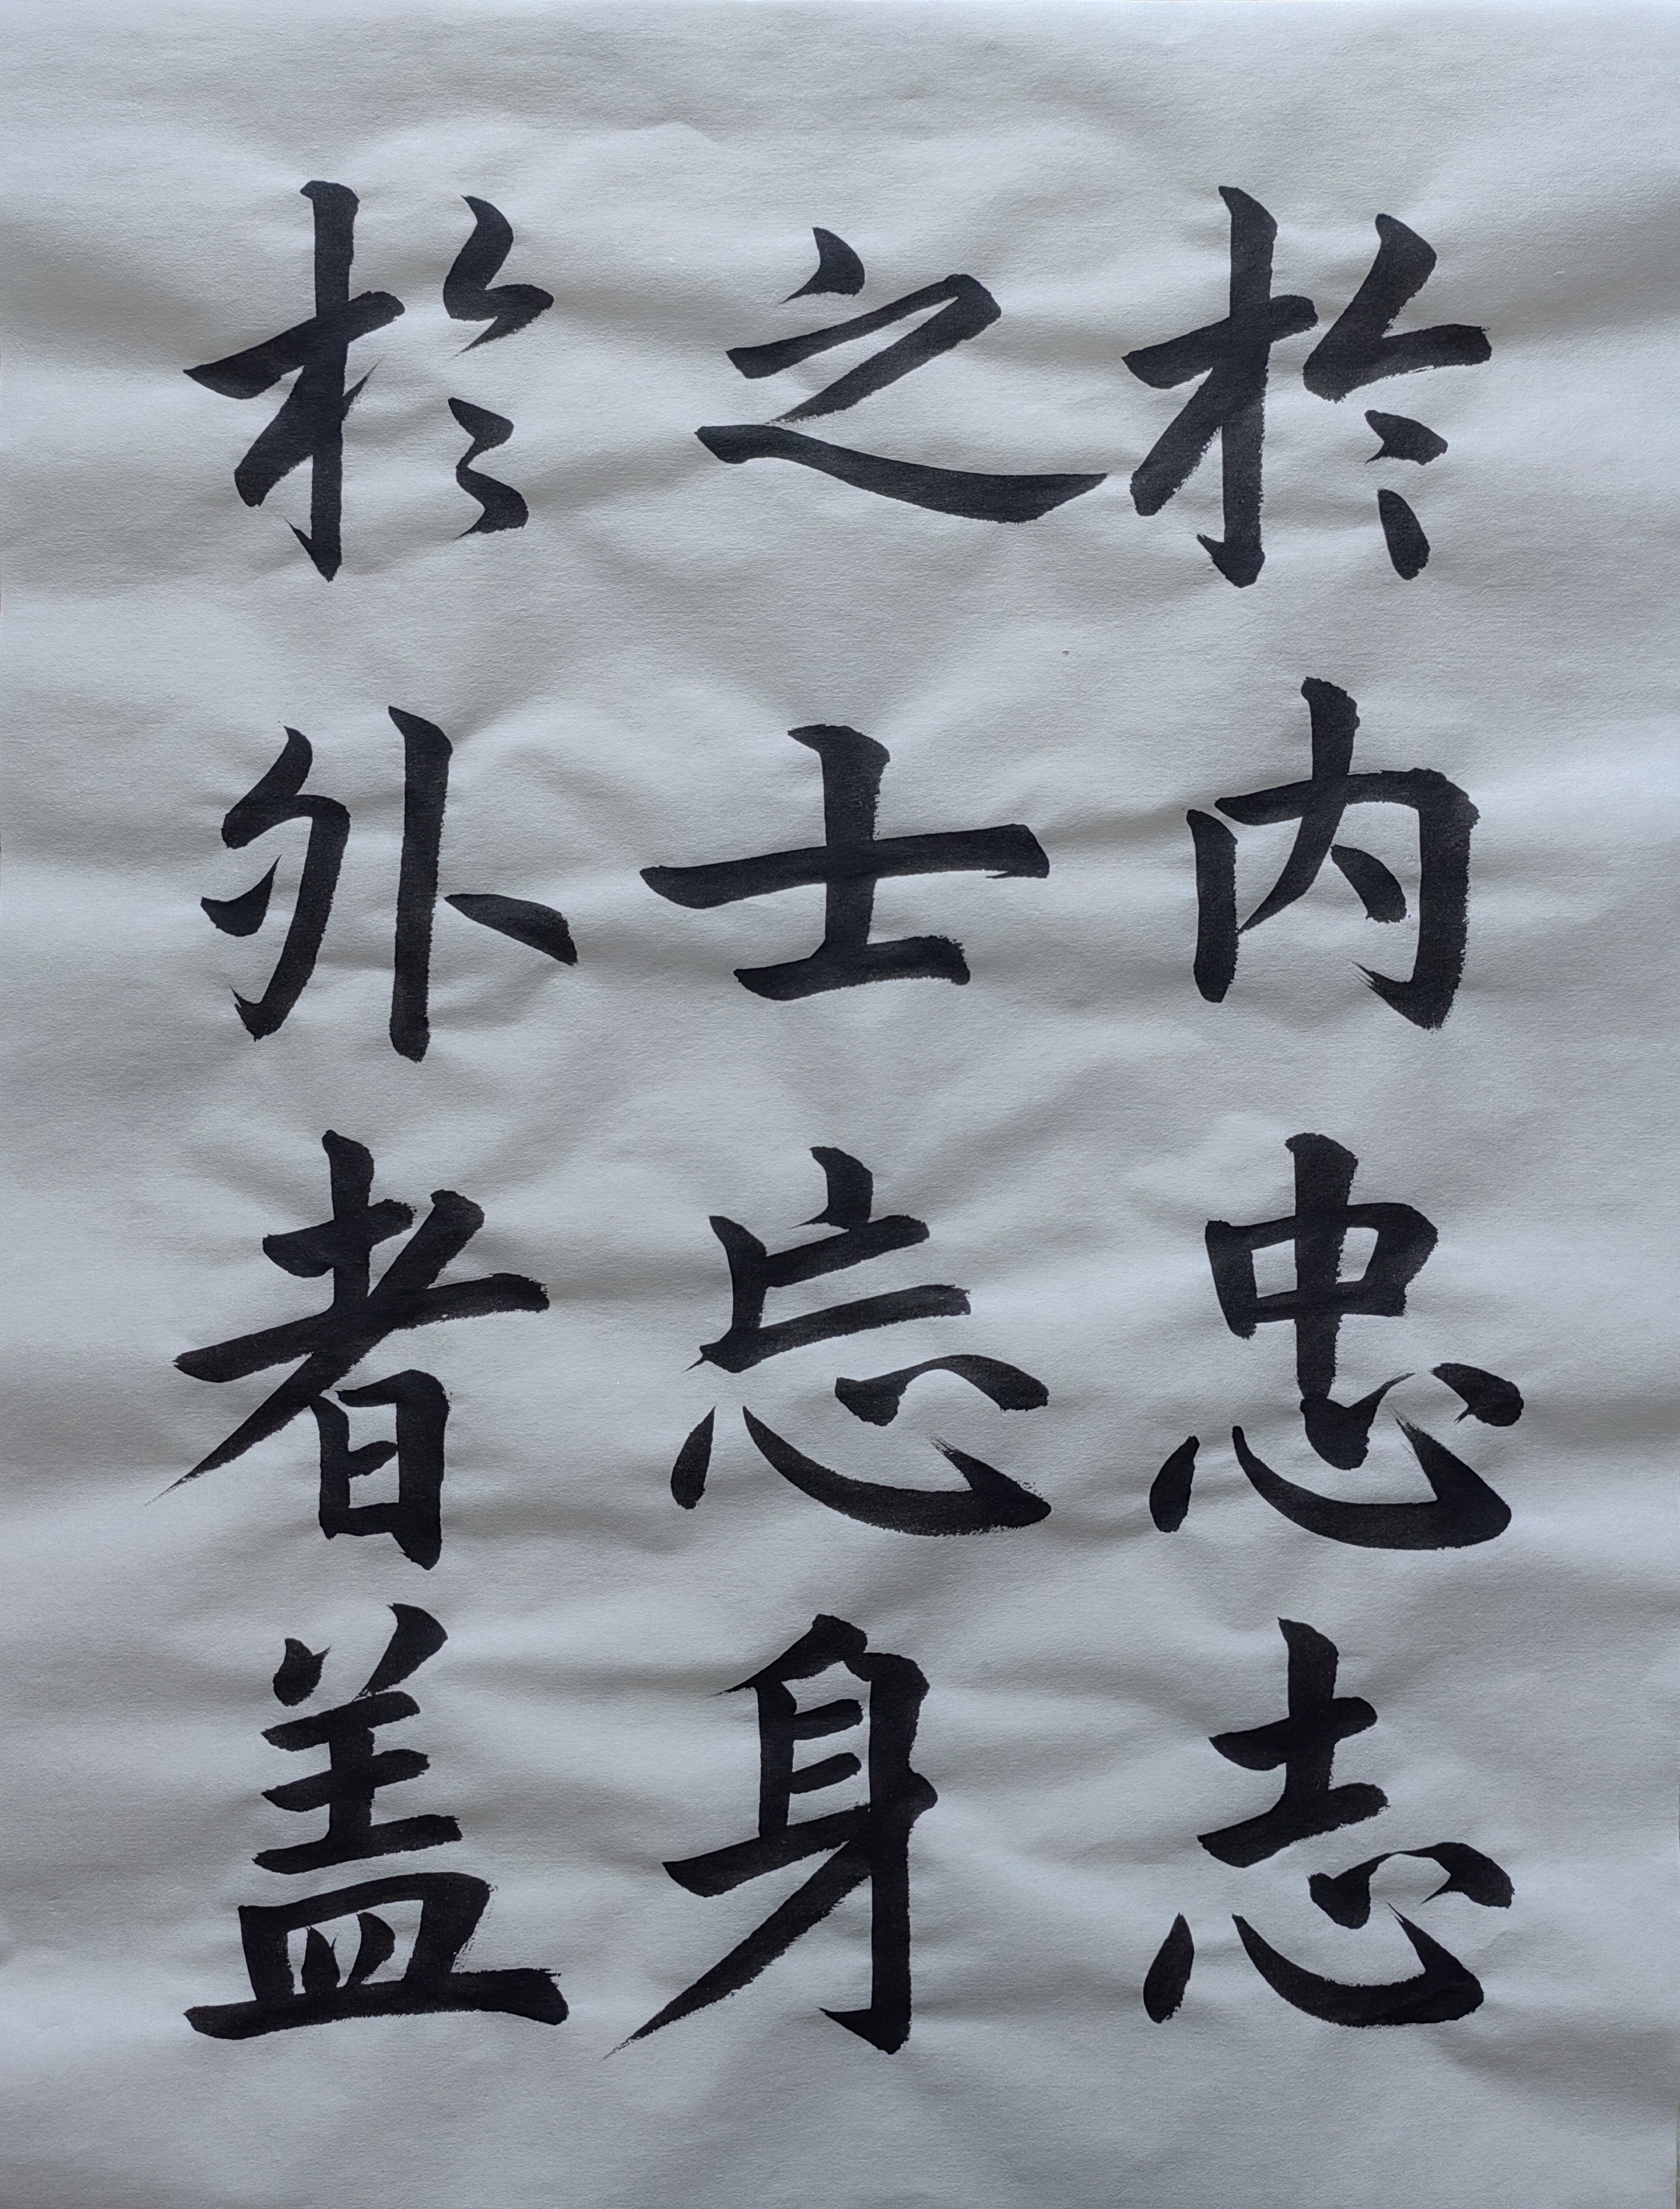 於内忠志
之士忘身
於外者盖